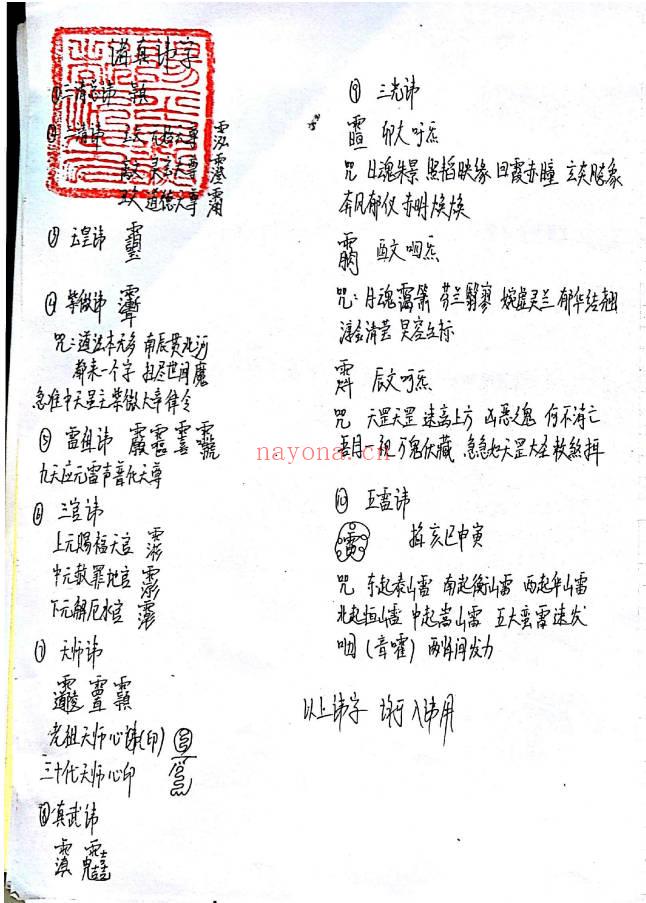 诸真讳字
①三清总讳
②三清讳 玉文 元始天尊
灵宝天尊
道德天尊
③ 玉皇讳
④ 紫微讳
咒:道法本无多 南辰贯北河
都来一个字 扫尽世间魔
急准中天星主紫微大帝律令
⑤ 雷祖讳
九天应元雷声普化天尊
⑥ 三官讳
上元赐福天官
中元赦罪地官
下元解厄水官
⑦ 天师讳
老祖天师心讳(印)
三十代天师心印
⑧真武讳
⑨ 三光讳
卯文吁炁
咒 日魂朱景 照韬映缘 回霞赤瞳 玄炎飚象
奔风郁仪 赤明焕焕
酉文呬炁
咒:月魂 芬兰翳寥 婉虚灵兰 郁华结翘
淳金清莹 炅容台标
辰文呵炁
咒 天罡天罡 速离上方 凶恶之鬼 何不消亡
吾目一视 万鬼伏藏 急急如天罡大圣敕煞摄
⑩ 五雷讳
掐亥巳申寅
咒 东起泰山雷 南起衡山雷 西起华山雷
北起恒山雷 中起嵩山雷 五大蛮雷速发
(音嚯) 两眉间发力
以上讳字 诸可入讳用
nayona.cn